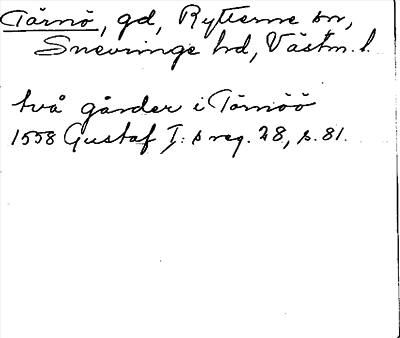 Tärnö, gd, Rytterne sn,
Snevringe hd, Västm. l.
två gårder i Tärnöö
1558 Gustaf I: s reg. 28, s. 81.